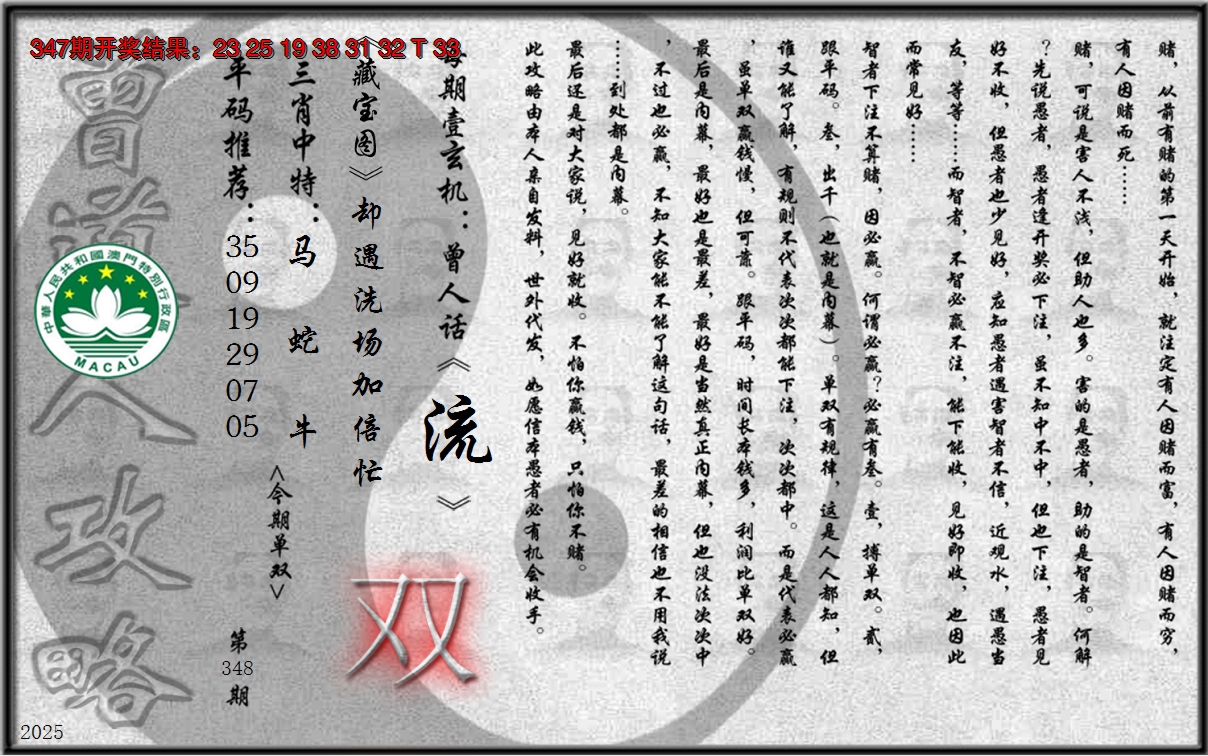 347期开奖结果：23 25 19 38 31 32 T 33
赌，从前有赌的第一天开始，就注定有人因赌而富，有人因赌而穷，
有人因赌而死……
赌，可说是害人不浅，但助人也多。害的是愚者，助的是智者。何解
？先说愚者，愚者逢开奖必下注，虽不知中不中，但也下注，愚者见
好不收，但愚者也少见好，应知愚者遇害智者不信，近观水，遇愚当
友，等等……而智者，不智必赢不注，能下能收，见好即收，也因此
而常见好……
智者下注不算赌，因必赢。何谓必赢？必赢有叁。壹，搏单双。贰，
跟平码。叁，出千（也就是内幕）。单双有规律，这是人人都知，但
谁又能了解，有规则不代表次次都能下注，次次都中。而是代表必赢
，虽单双赢钱慢，但可靠。跟平码，时间长本钱多，利润比单双好。
最后是内幕，最好也是最差，最好是当然真正内幕，但也没法次次中
，不过也必赢，不知大家能不能了解这句话，最差的相信也不用我说
……到处都是内幕。
最后还是对大家说，见好就收。不怕你赢钱，只怕你不赌。
此攻略由本人亲自发料，世外代发，如愿信本愚者必有机会收手。
每期壹玄机：曾人话《流》
《藏宝图》却遇洗场加倍忙
三肖中特：马 蛇 牛
平码推荐：35 09 19 29 07 05
<今期单双>
双
第348期
曾道人攻略
中華人民共和國澳門特別行政區
MACAU
2025